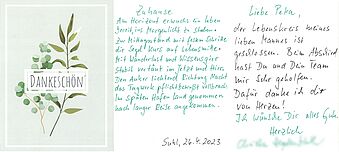 DANKESCHÖN
Zuhause
Am Horizont erwacht ein Leben
bereit, ins Morgenlicht zu
Zur Mittagsstund mit festem Schritte
die Segel Kurs auf Lebensmitte.
Mit Wanderlust und Wissensgier
Stabil vertäut im Jetzt und Hier.
Den Anker lichtend Richtung Nacht
das Tagwerk pflichtbewußt vollbracht
Im späten Hafen Land genommen
nach langer Reise angekommen.
Suhl, 26.4.2023
Liebe Petra,
der Lebenskreis meines
lieben Mannes ist
geschlossen. Beim Abschied
hast Du und Dein Team
mir sehr geholfen.
Dafür danke ich dir
von Herzen!
Ich wünsche Dir alles Gute.
Herzlich